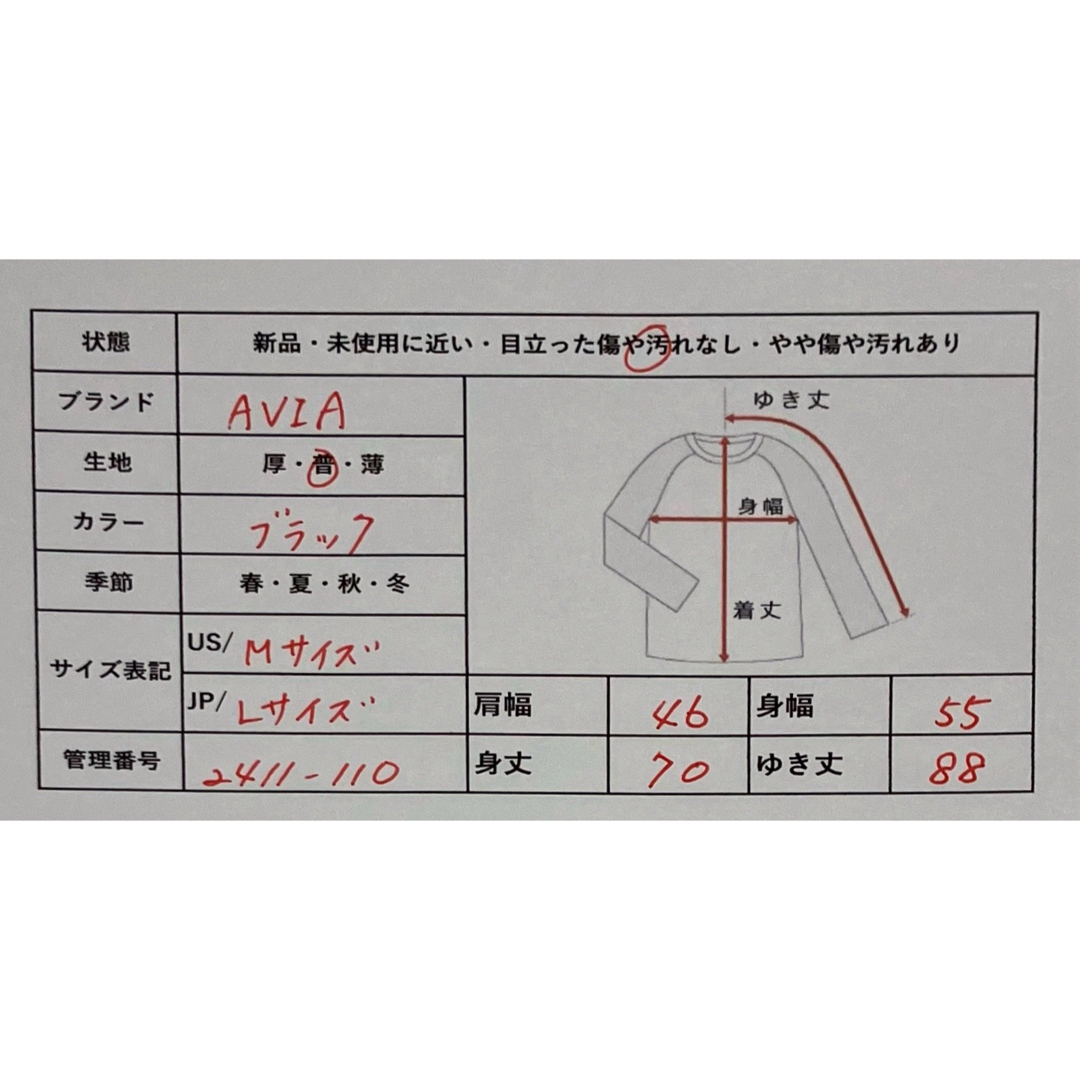 状態 新品・未使用に近い・目立った傷や汚れなし・やや傷や汚れあり
ブランド AVIA
生地 厚・普・薄
カラー ブラック
季節 春・夏・秋・冬
サイズ表記 US/ Mサイズ
JP/ Lサイズ
管理番号 2411-110
ゆき丈
身幅
着丈
肩幅 46 身幅 55
身丈 70 ゆき丈 88